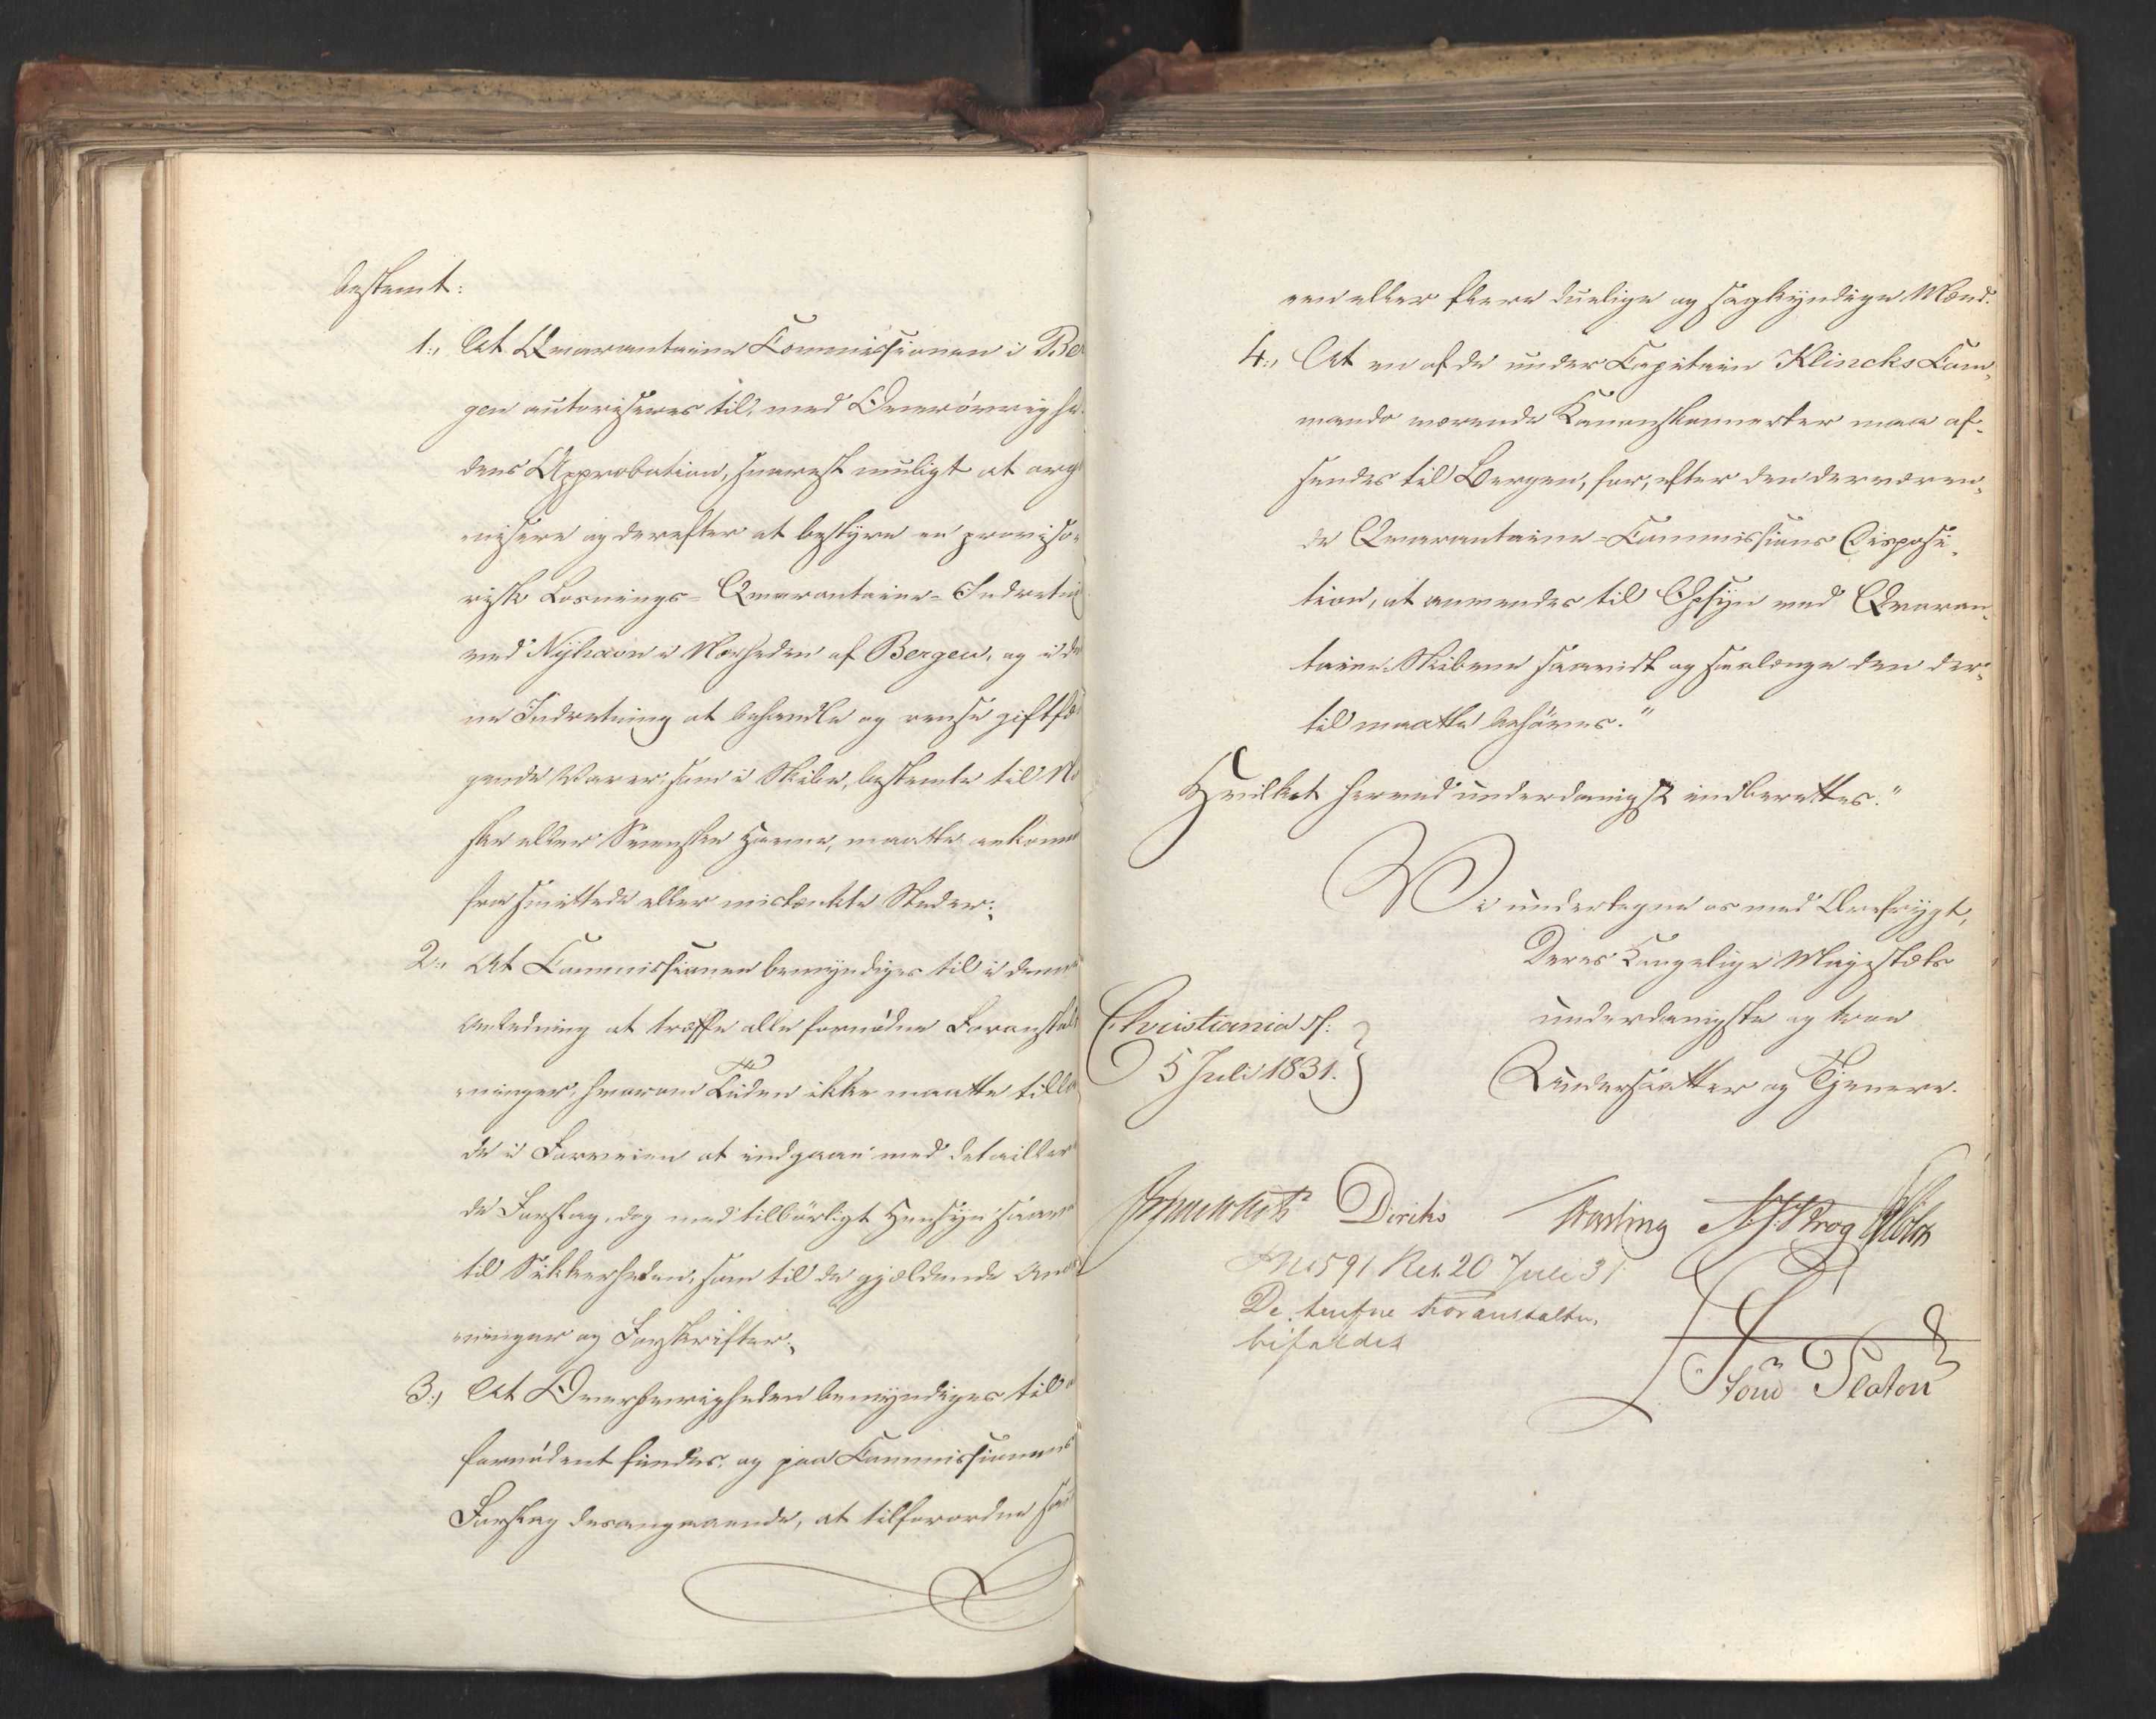 bestemt:
1., At Quarantaine Commissionen i Ber
gen autoriseres til, med Overøvrighe
dens Approbation, snarest muligt at orga
nisere og derefter at bestyre en proviso-
risk Losnings-Quarantaine-Indretni
ved Nyhavn i Nærheden af Bergen, og i den
ne Indretning at behandle og rense giftfæ
gende Varer, som i Skibe, bestemte til No
ske eller Svenske Havne, maatte ankomm
fra smittede eller mistænkte Steder;
2., At Commissionen bemyndiges til i denne
Anledning at træffe alle fornødne Foranstalt
ninger, hvorom Tiden ikke maatte tilla
de i Forveien at indgaae med detaillere
de Forslag, dog med tilbørligt Hensyn saave
til Sikkerheden, som til de gjældende Anord
ninger og Forskrifter;
3., At Overøvrigheden bemyndiges til
fornødent findes, og paa Commissionens
Forslag desangaaende, at tilforordne
een eller flere duelige og sagkyndige Mænd.
4., At en af de under Capitain Klincks Com-
mando værende Kanonskonnerter maa af-
sendes til Bergen, for, efter den derværen-
de Quarantaine-Commissions Disposi-
tion, at anvendes til Opsyn med Quaran-
taine-Skibene saavidt og saalænge den der-
til maatte behøves."
Hvilket herved underdanigst indberettes."
Vi undertegne os med Ærefrygt,
Deres Kongelige Majestæts
underdanigste og troe
Undersaatter og Tjenere.
Christiania d.
5 Juli 1831.
Diriks Fasting Krog
No 591 Res. 20 Juli 31
De trufne Foranstaltn.
bifaldes
Platou